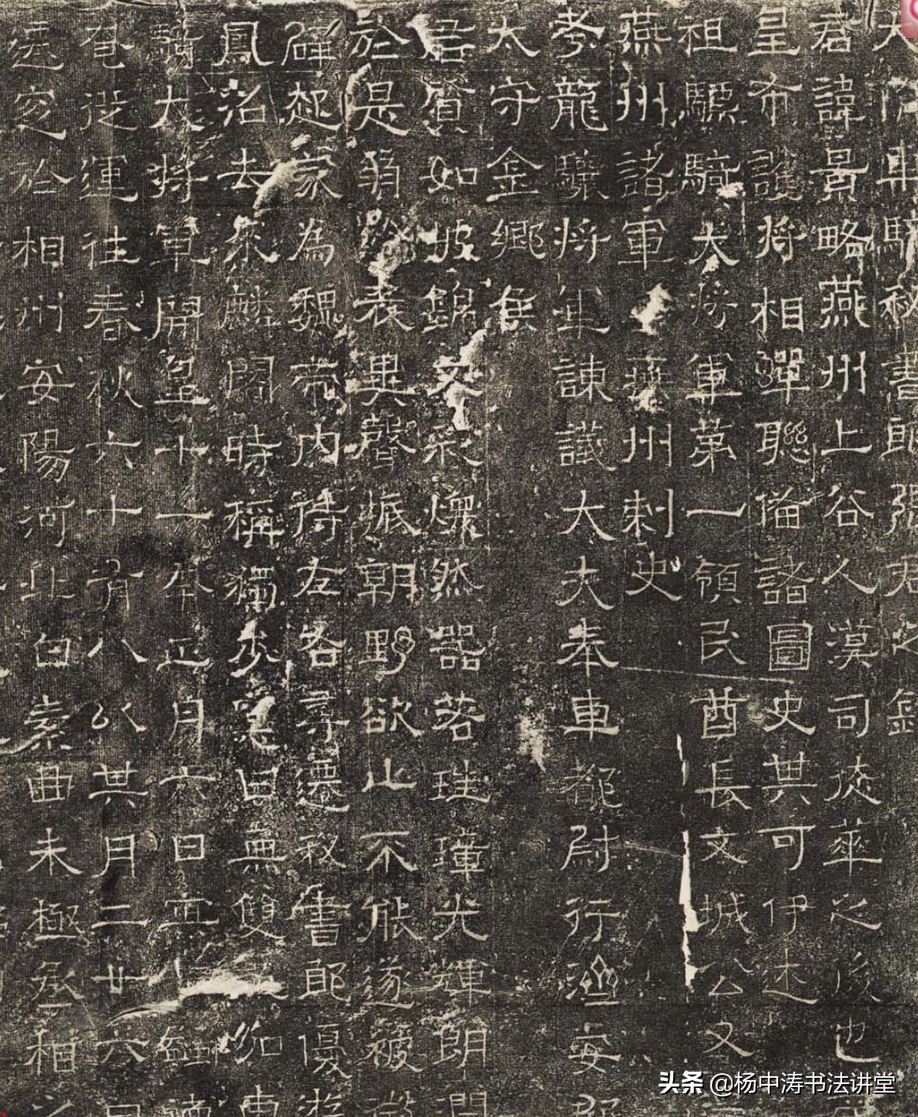 大隋車騎秘書郎張君之銘
君諱景略燕州上谷人漢司徒華之後也
皇帝將相蟬聯備諸圖史其可伊述
祖驃騎大將軍第一領民酋長文城公又
燕州諸軍事燕州刺史
考龍驤將軍諫議大夫奉車都尉行濟安郡
太守金鄉侯
君質如披錦文彩煥然器若珪璋光輝朗閏
於是有表異聲振朝野欲止不能遂被徵
辟起家為魏帝內侍左右尋遷秘書郎優游
鳳沼去來麟閣時稱獨步曰無雙加車
騎大將軍開皇十一年正月六日
奄從運往春秋六十有八以其月二廿六日
遷窆於相州安陽河北白素曲未極丞相之
头条 @杨中涛书法讲堂